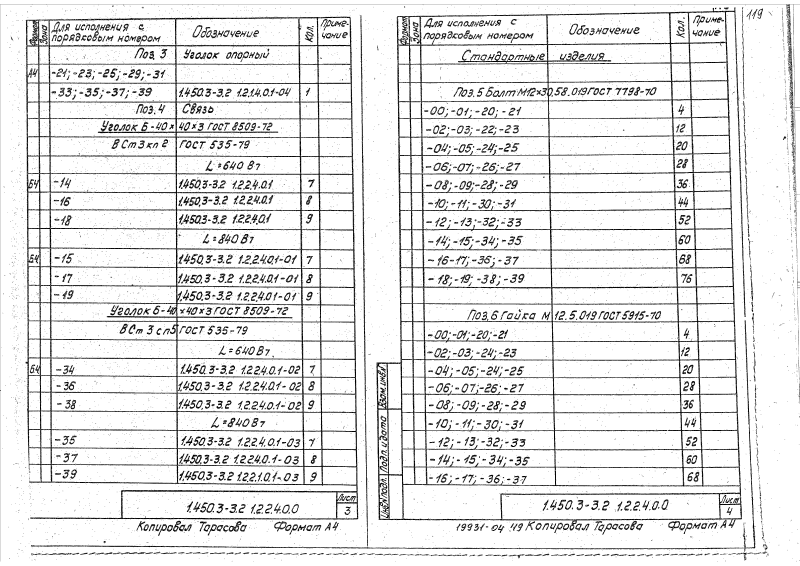 Формат Зона Для исполнения с порядковым номером Обозначение Кол. Приме-чание
Поз. 3 Уголок опорный
А4 -21; -23; -25; -29; -31
-33; -35; -37; -39 1.450.3-3.2 1.2.1.4.0.1-04 1
Поз. 4 Связь
Уголок Б-40×40×3 ГОСТ 8509-72
ВСт3кп2 ГОСТ 535-79
L=640 Вт
Б4 -14 1.450.3-3.2 1.2.2.4.0.1 7
-16 1.450.3-3.2 1.2.2.4.0.1 8
-18 1.450.3-3.2 1.2.2.4.0.1 9
L=840 Вт
Б4 -15 1.450.3-3.2 1.2.2.4.0.1-01 7
-17 1.450.3-3.2 1.2.2.4.0.1-01 8
-19 1.450.3-3.2 1.2.2.4.0.1-01 9
Уголок Б-40×40×3 ГОСТ 8509-72
ВСт3сп5 ГОСТ 535-79
L=640 Вт
Б4 -34 1.450.3-3.2 1.2.2.4.0.1-02 7
-36 1.450.3-3.2 1.2.2.4.0.1-02 8
-38 1.450.3-3.2 1.2.2.4.0.1-02 9
L=840 Вт
-35 1.450.3-3.2 1.2.2.4.0.1-03 7
-37 1.450.3-3.2 1.2.2.4.0.1-03 8
-39 1.450.3-3.2 1.2.2.1.0.1-03 9
1.450.3-3.2 1.2.2.4.0.0 Лист 3
Копировал Тарасова Формат А4
119
Формат Зона Для исполнения с порядковым номером Обозначение Кол. Приме-чание
Стандартные изделия
Поз. 5 Болт М12×30.58.019 ГОСТ 7798-70
-00; -01; -20; -21 4
-02; -03; -22; -23 12
-04; -05; -24; -25 20
-06; -07; -26; -27 28
-08; -09; -28; -29 36
-10; -11; -30; -31 44
-12; -13; -32; -33 52
-14; -15; -34; -35 60
-16-17; -36; -37 68
-18; -19; -38; -39 76
Поз. 6 Гайка М12.5.019 ГОСТ 5915-70
-00; -01; -20; -21 4
-02; -03; -24; -23 12
-04; -05; -24; -25 20
-06; -07; -26; -27 28
-08; -09; -28; -29 36
-10; -11; -30; -31 44
-12; -13; -32; -33 52
-14; -15; -34; -35 60
-16; -17; -36; -37 68
Инв№подл. Подп. и дата Взам.инв№
1.450.3-3.2 1.2.2.4.0.0 Лист 4
19931-04 119 Копировал Тарасова Формат А4